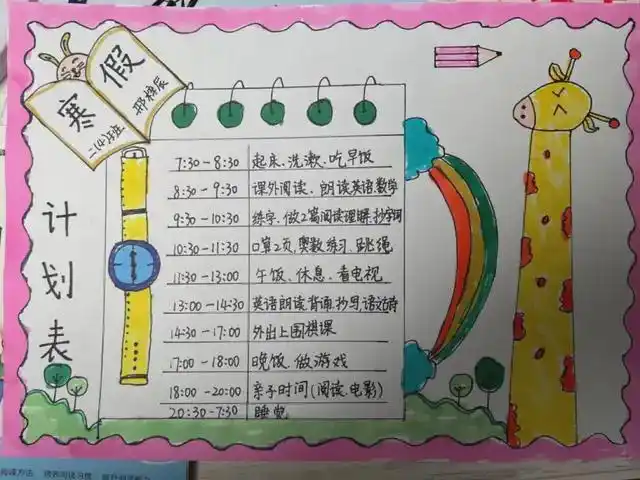 寒假
二(4)班
计划表
7:30-8:30 起床、洗漱、吃早饭
8:30-9:30 课外阅读、朗读英语数学
9:30-10:30 练字、做2篇阅读理解、抄字词
10:30-11:30 口算2页,奥数练习、跳绳
11:30-13:00 午饭、休息、看电视
13:00-14:30 英语朗读背诵,抄写,语文
14:30-17:00 外出上围棋课
17:00-18:00 晚饭、做游戏
18:00-20:00 亲子时间(阅读、电影)
20:30-7:30 睡觉